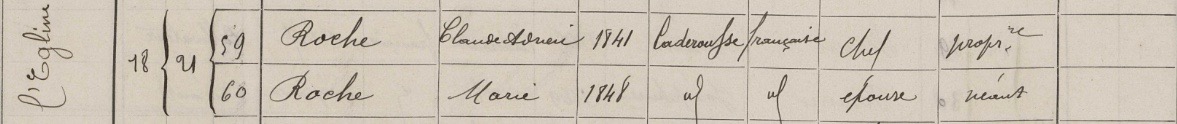 l'Eglise
18 21 59 Roche Claude Adrien 1841 Caderousse française chef propr.re
60 Roche Marie 1848 id id épouse néant